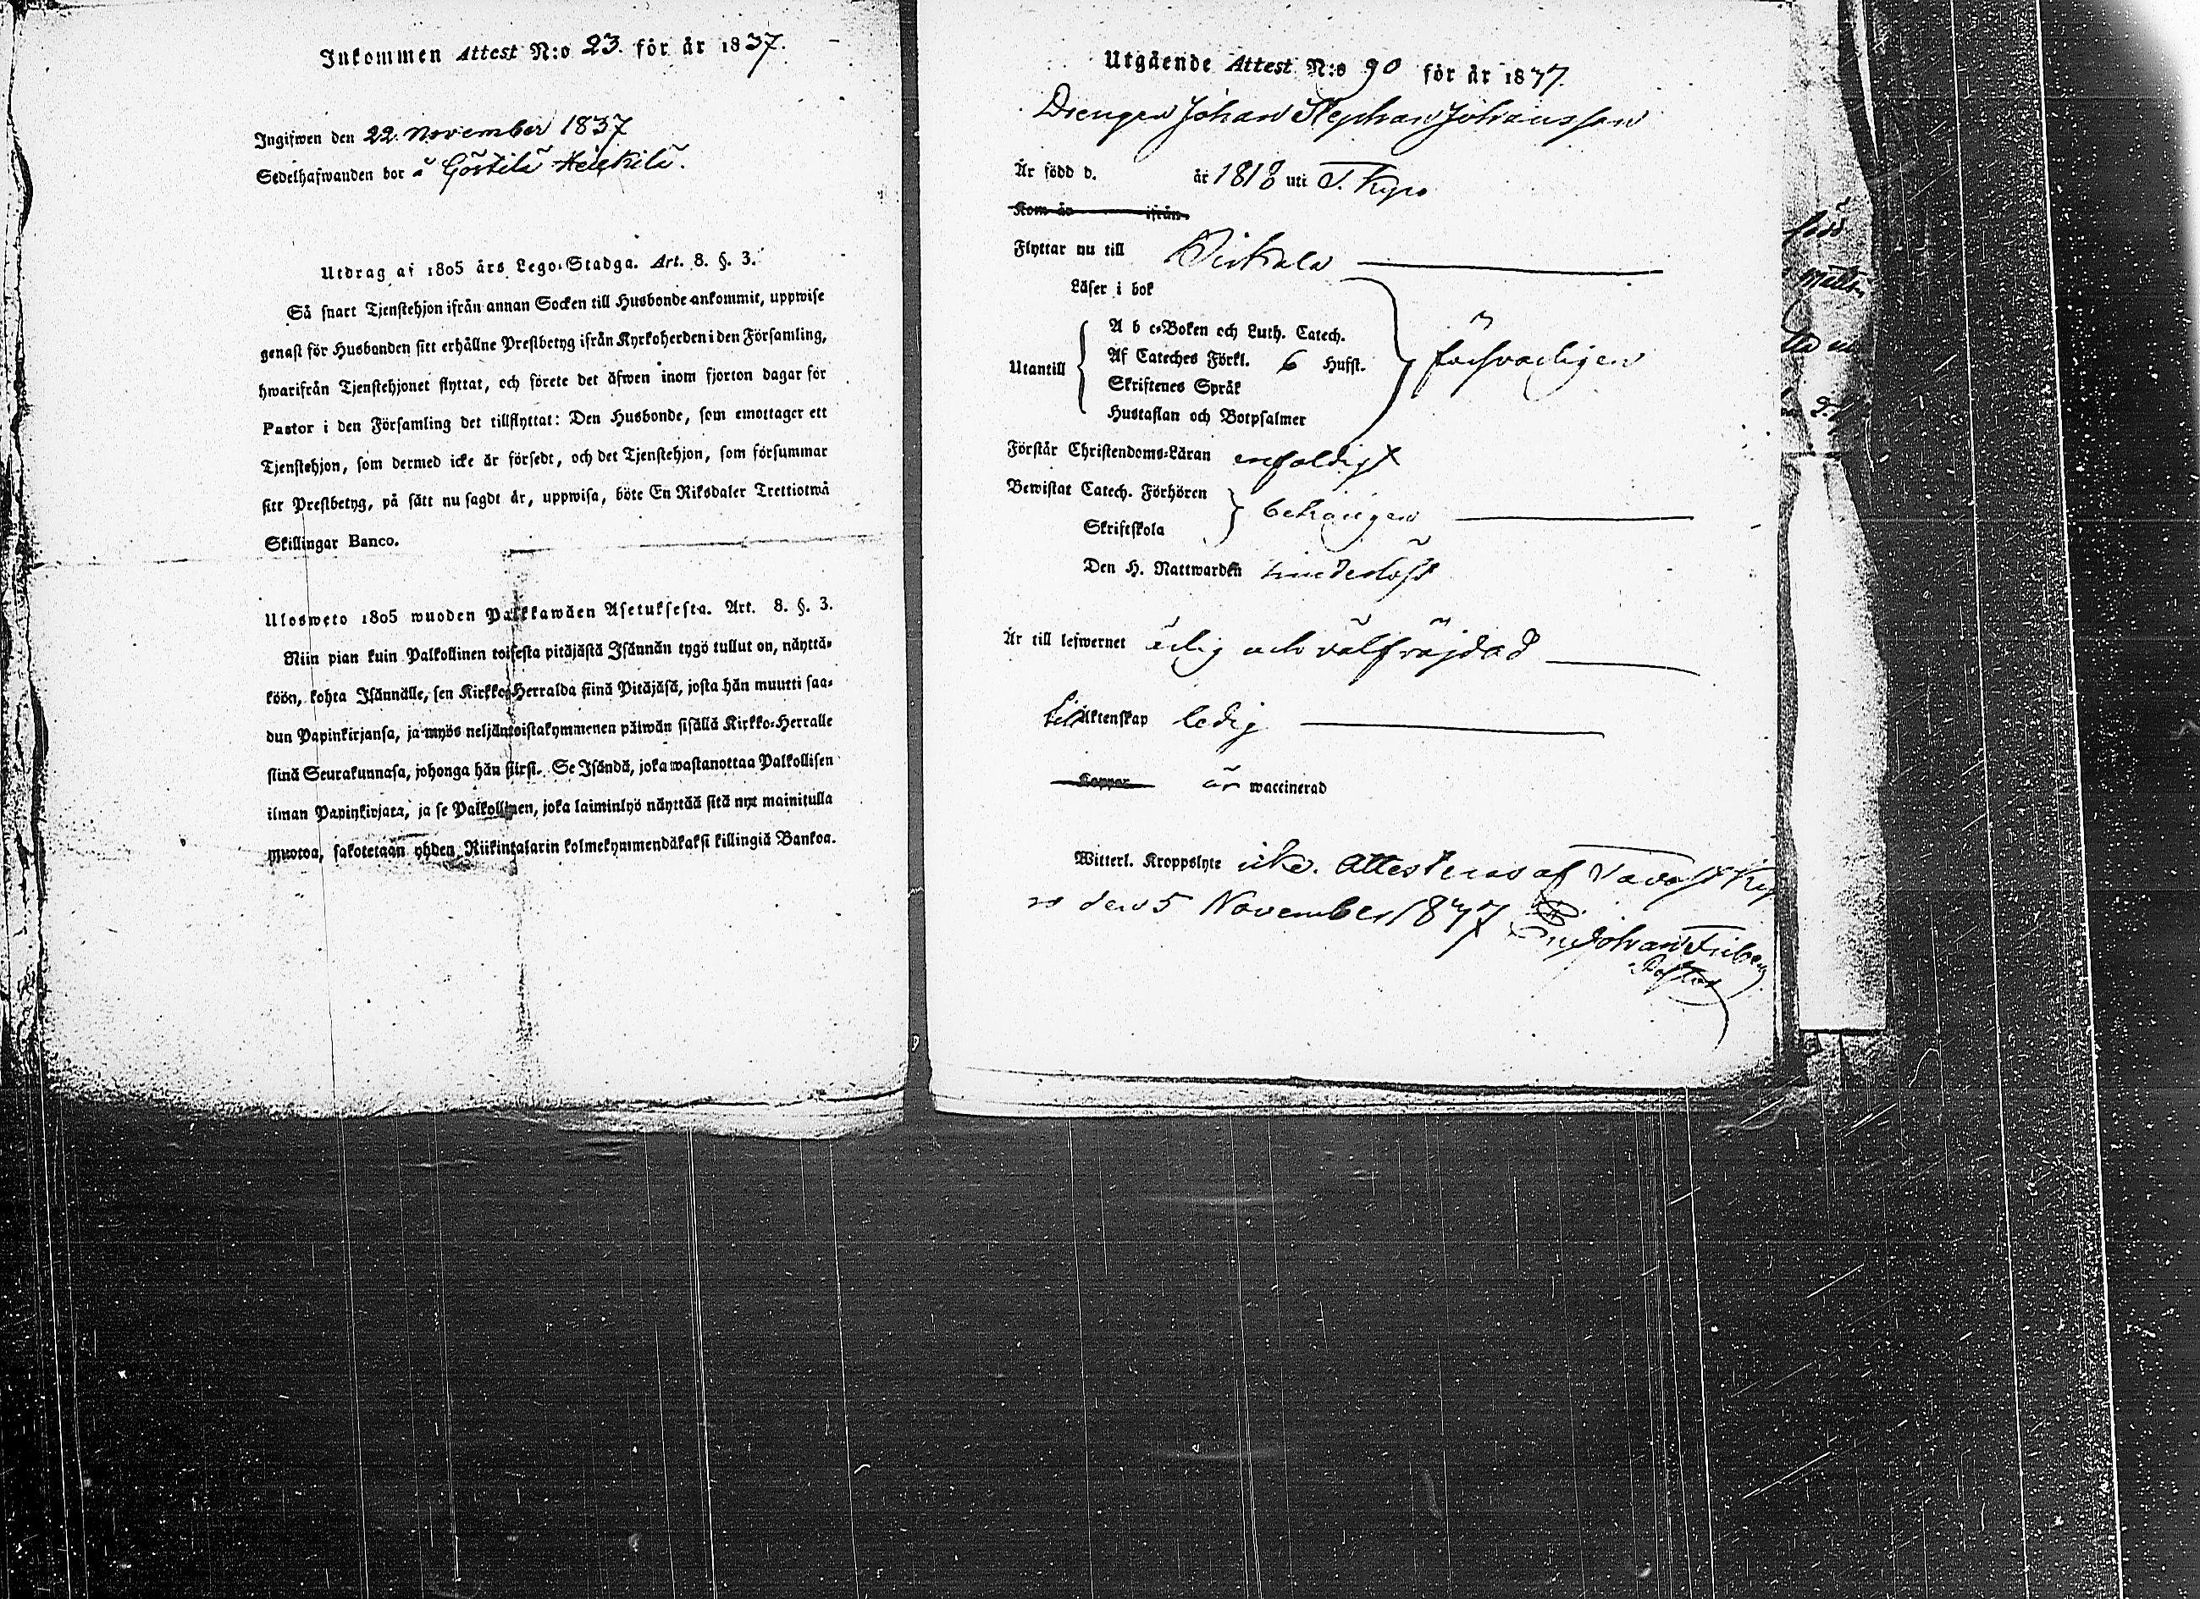 Inkommen Attest N:o 23. för år 1837.
Ingifwen den 22. November 1837
Sedelhafwanden bor å Göstilä Heikkilä.
Utdrag af 1805 års Lego-Stadga. Art. 8. §. 3.
Så snart Tjenstehjon ifrån annan Socken till Husbonde ankommit, uppwise
genast för Husbonden sitt erhållne Prestbetyg ifrån Kyrkoherden i den Församling,
hwarifrån Tjenstehjonet flyttat, och förete det äfwen inom fjorton dagar för
Pastor i den Församling det tillflyttat: Den Husbonde, som emottager ett
Tjenstehjon, som dermed icke är försedt, och det Tjenstehjon, som försummar
sitt Prestbetyg, på sätt nu sagdt är, uppwisa, böte En Riksdaler Trettiotwå
Skillingar Banco.
Ulosweto 1805 wuoden Palkkawäen Asetuksesta. Art. 8. §. 3.
Niin pian kuin Palkollinen toisesta pitäjästä Isännän tygö tullut on, näyttä-
köön, kohta Isännälle, sen Kirkko-Herralda siinä Pitäjäsä, josta hän muutti saa-
dun Papinkirjansa, ja myös neljäntoistakymmenen päiwän sisällä Kirkko-Herralle
siinä Seurakunnasa, johonga hän siirsi. Se Isändä, joka wastanottaa Palkollisen
ilman Papinkirjata, ja se Palkollinen, joka laiminlyö näyttää sitä nyt mainitulla
muotoa, sakotetaan yhden Riikintalarin kolmekymmendäkaksi killingiä Bankoa.
Utgående Attest N:o 90 för år 1837.
Drengen Johan Stephan Johansson
Är född d. år 1818 uti T. Kyro
Kom år ifrån
Flyttar nu till Birkala
Läser i bok
Utantill
A b c-Boken och Luth. Catech.
Af Cateches Förkl. 6 Hufst.
Skriftenes Språk
Hustaflan och Botpsalmer
försvarligen
Förstår Christendoms-Läran enfaldigt
Bewistat Catech. Förhören
Skriftskola
behörigen
Den H. Nattwarden hinderlöst
Är till lefwernet ärlig och välfräjdad
till Äktenskap ledig
Koppor är waccinerad
Witterl. Kroppslyte icke. Attesteras af Tavast Ky
ro den 5 November 1837
Johan Friberg
Pastor
född